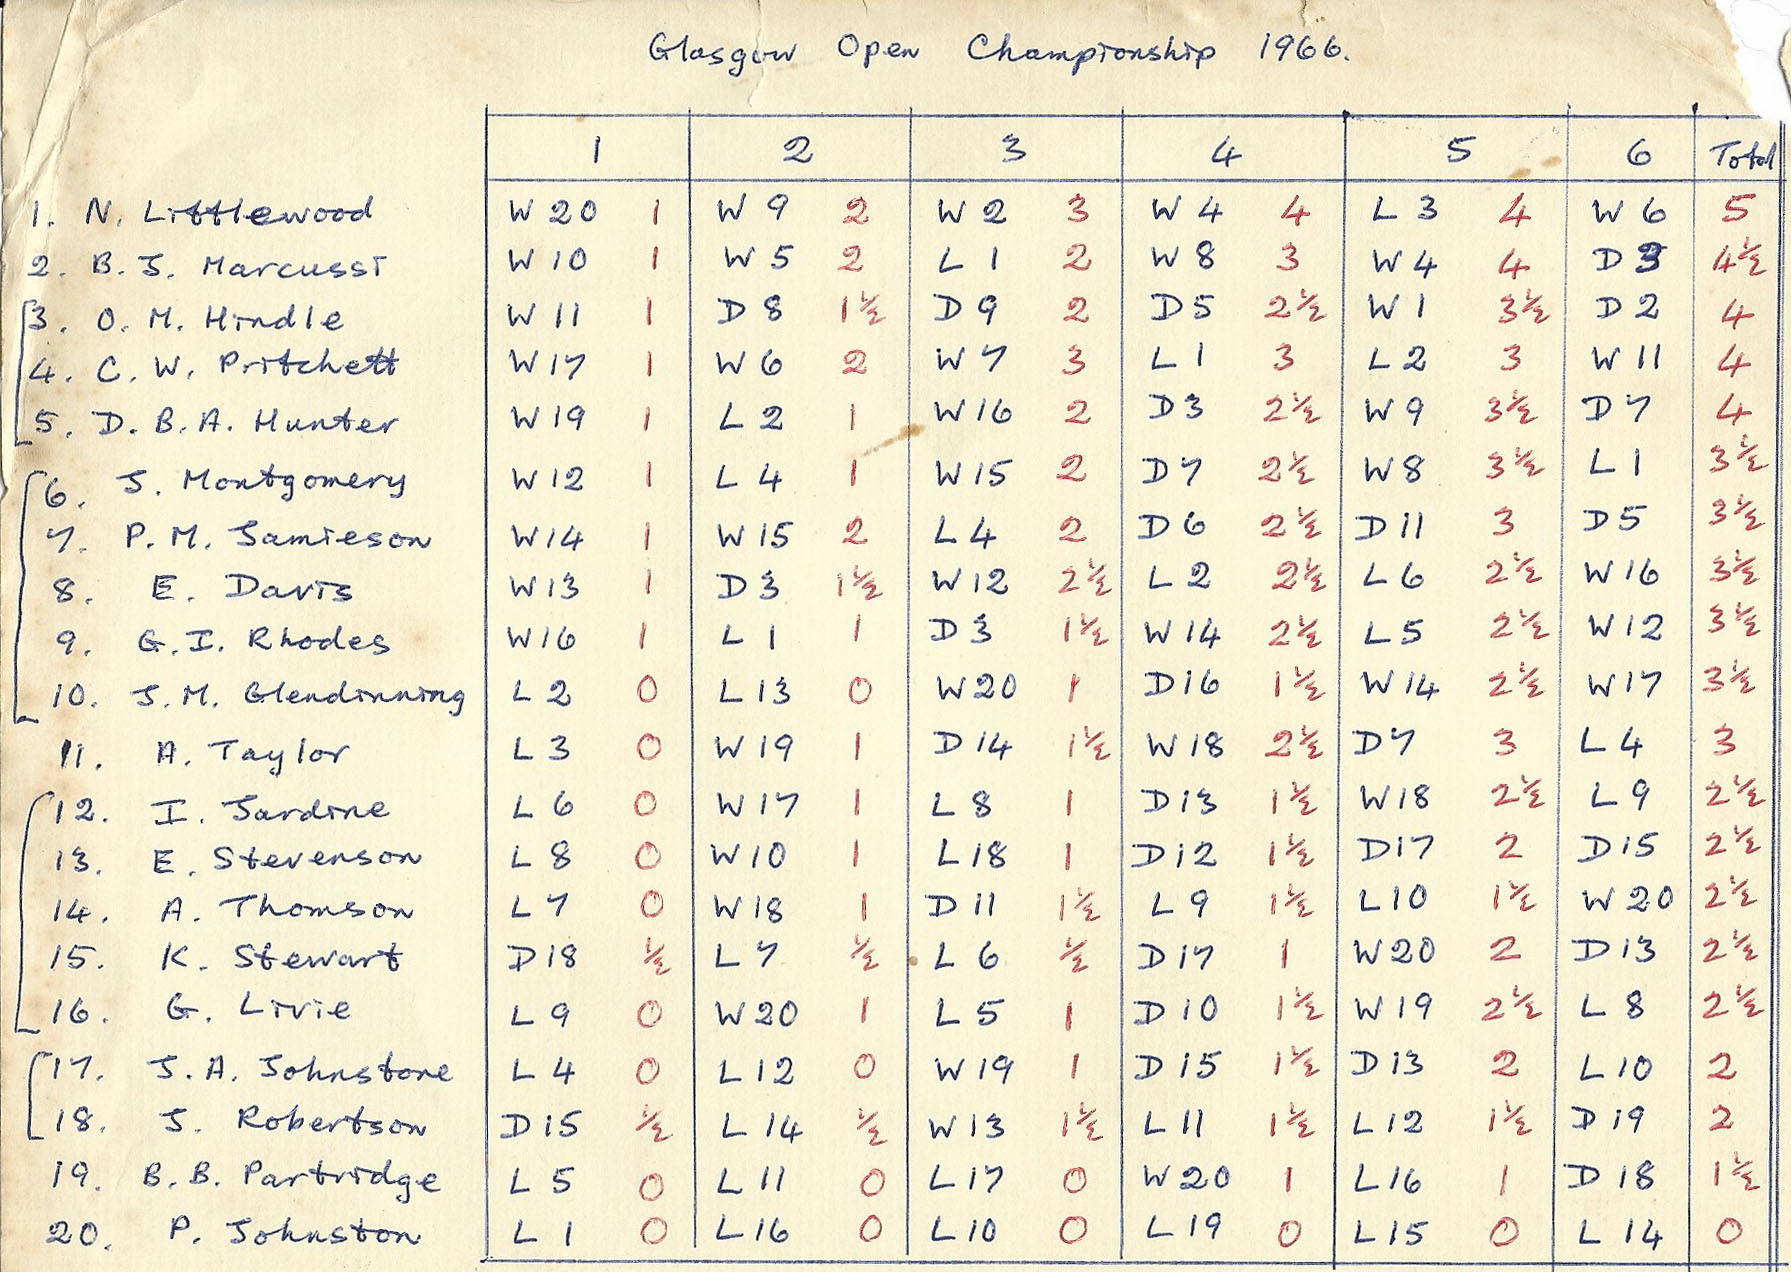 Glasgow Open Championship 1966.
1 2 3 4 5 6 Total
1. N. Littlewood W 20 1 W 9 2 W 2 3 W 4 4 L 3 4 W 6 5
2. B. J. Marcussi W 10 1 W 5 2 L 1 2 W 8 3 W 4 4 D 3 4½
3. O. M. Hindle W 11 1 D 8 1½ D 9 2 D 5 2½ W 1 3½ D 2 4
4. C. W. Pritchett W 17 1 W 6 2 W 7 3 L 1 3 L 2 3 W 11 4
5. D. B. A. Hunter W 19 1 L 2 1 W 16 2 D 3 2½ W 9 3½ D 7 4
6. J. Montgomery W 12 1 L 4 1 W 15 2 D 7 2½ W 8 3½ L 1 3½
7. P. M. Jamieson W 14 1 W 15 2 L 4 2 D 6 2½ D 11 3 D 5 3½
8. E. Davis W 13 1 D 3 1½ W 12 2½ L 2 2½ L 6 2½ W 16 3½
9. G. I. Rhodes W 16 1 L 1 1 D 3 1½ W 14 2½ L 5 2½ W 12 3½
10. J. M. Glendinning L 2 0 L 13 0 W 20 1 D 16 1½ W 14 2½ W 17 3½
11. A. Taylor L 3 0 W 19 1 D 14 1½ W 18 2½ D 7 3 L 4 3
12. I. Jardine L 6 0 W 17 1 L 8 1 D 13 1½ W 18 2½ L 9 2½
13. E. Stevenson L 8 0 W 10 1 L 18 1 D 12 1½ D 17 2 D 15 2½
14. A. Thomson L 7 0 W 18 1 D 11 1½ L 9 1½ L 10 1½ W 20 2½
15. K. Stewart D 18 ½ L 7 ½ L 6 ½ D 17 1 W 20 2 D 13 2½
16. G. Livie L 9 0 W 20 1 L 5 1 D 10 1½ W 19 2½ L 8 2½
17. J. A. Johnstone L 4 0 L 12 0 W 19 1 D 15 1½ D 13 2 L 10 2
18. J. Robertson D 15 ½ L 14 ½ W 13 1½ L 11 1½ L 12 1½ D 19 2
19. B. B. Partridge L 5 0 L 11 0 L 17 0 W 20 1 L 16 1 D 18 1½
20. P. Johnston L 1 0 L 16 0 L 10 0 L 19 0 L 15 0 L 14 0